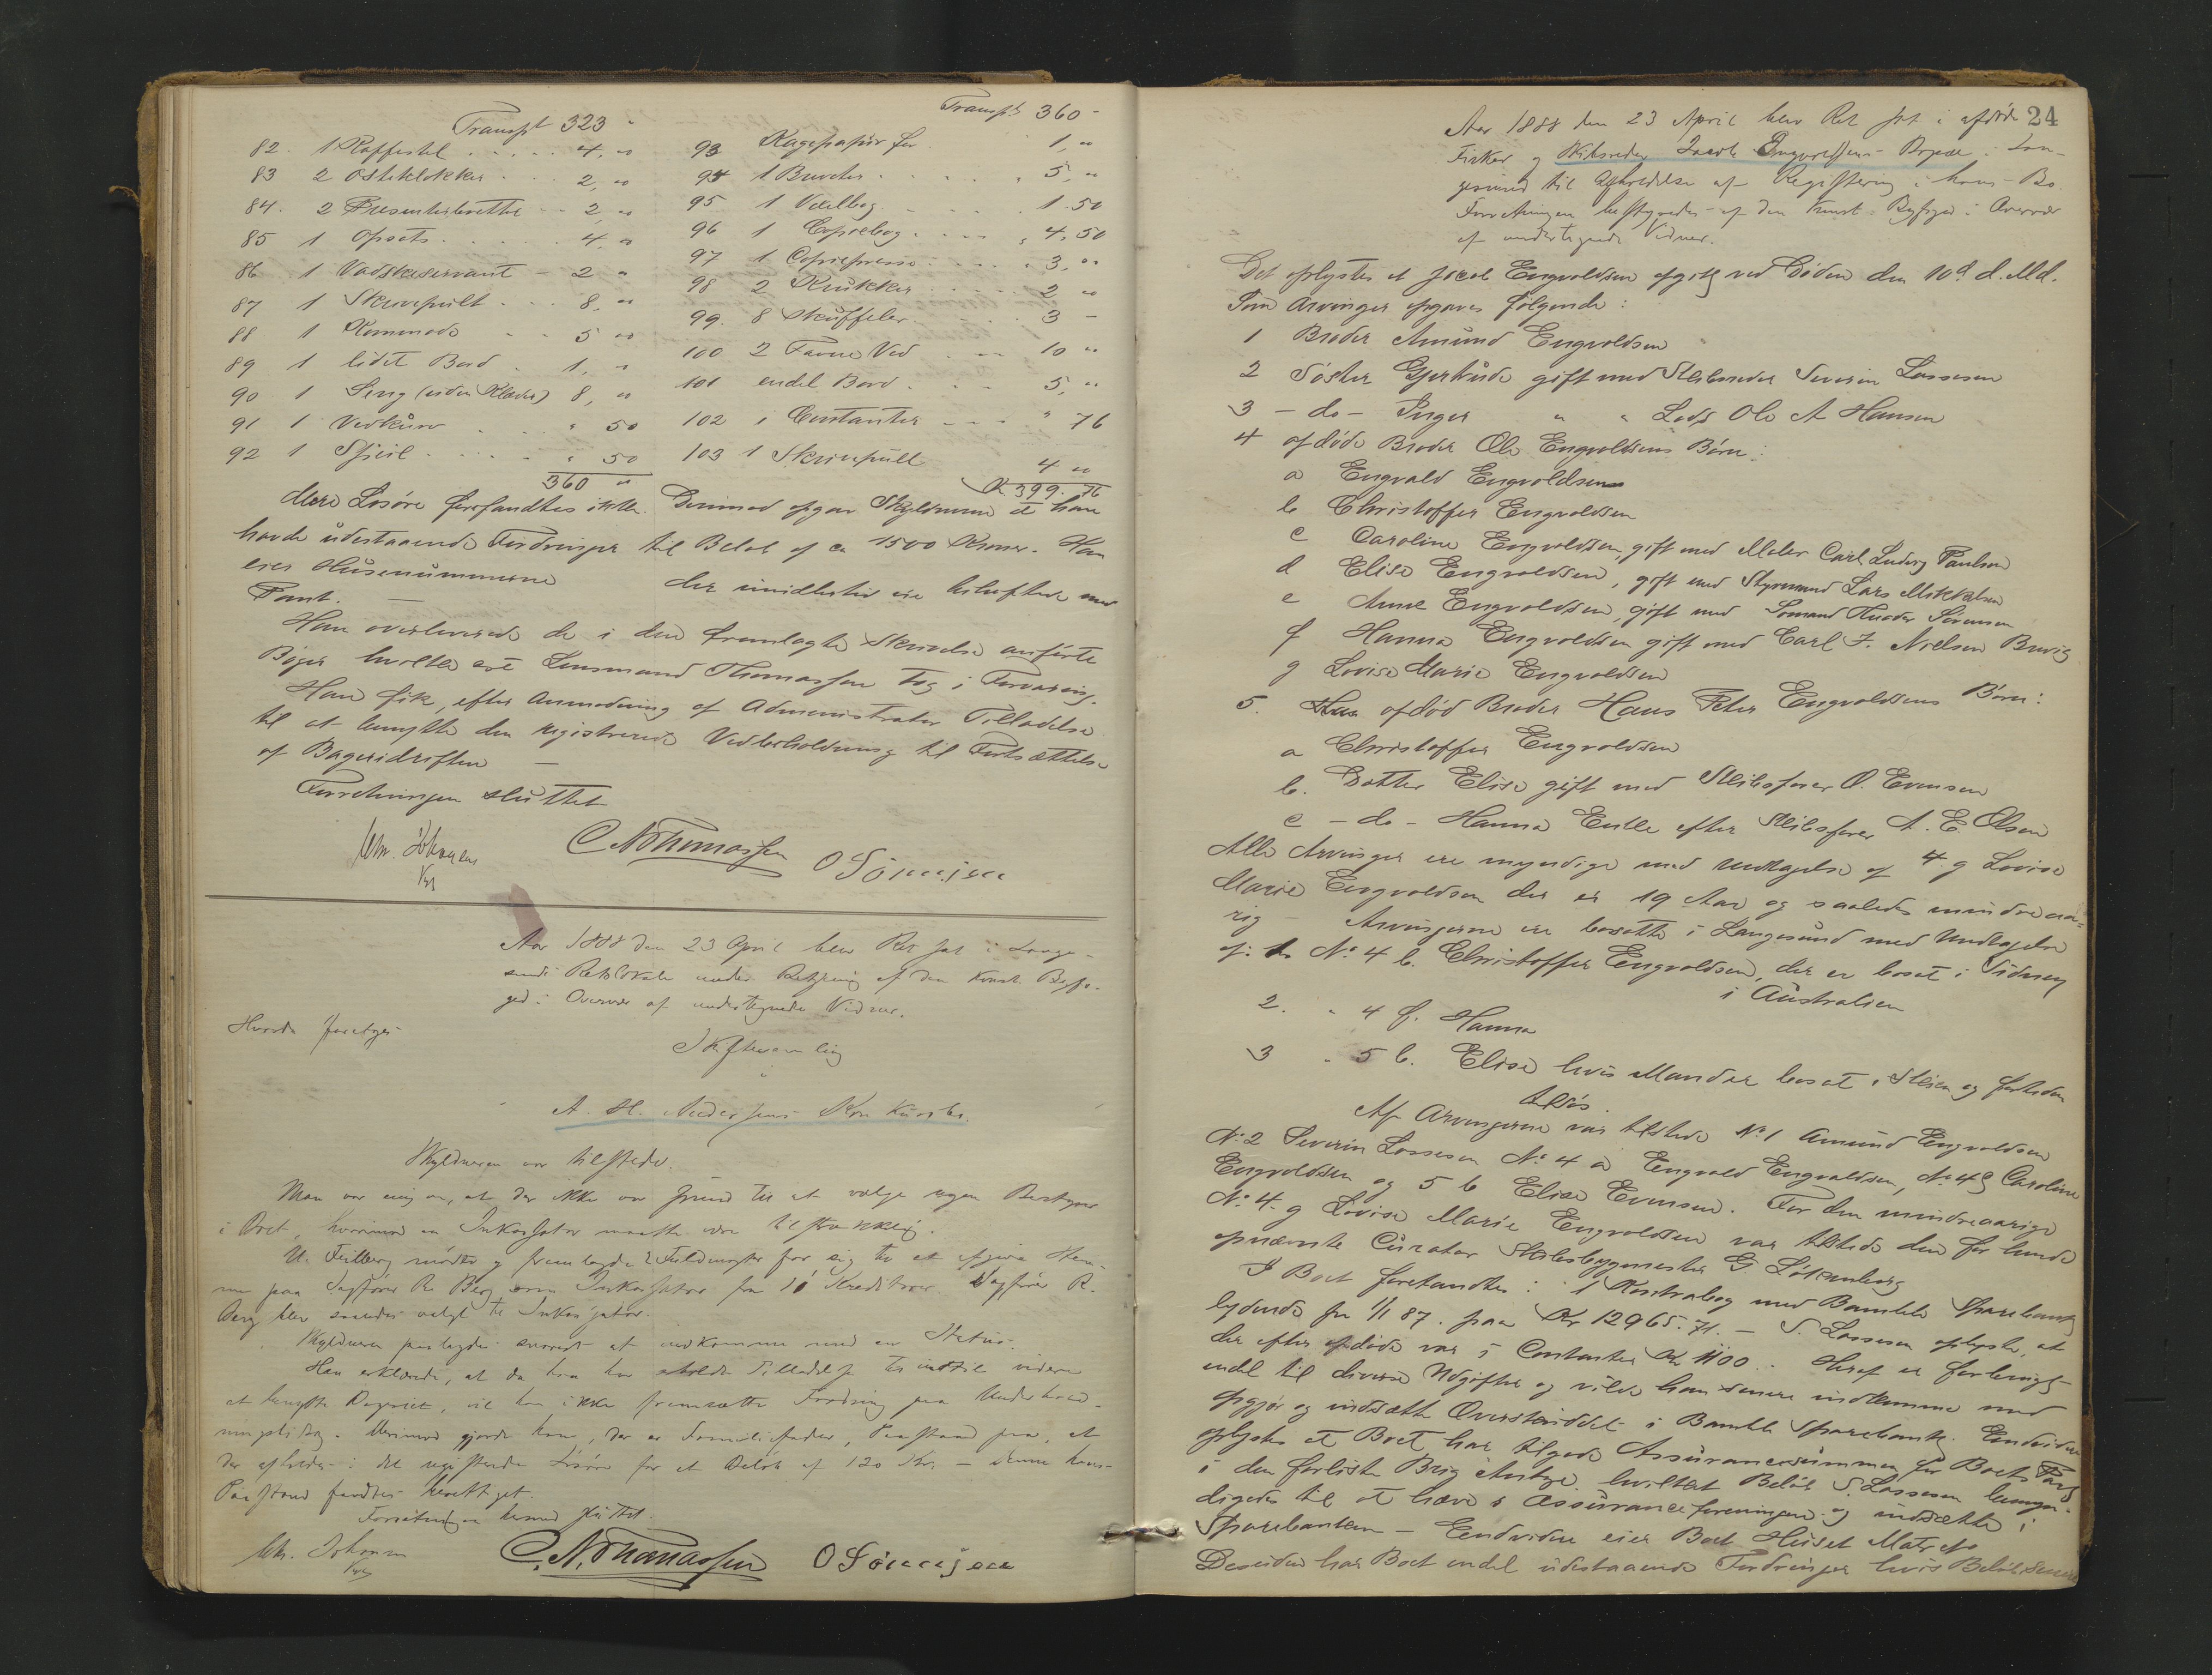 Transpt 323 "
82. 1 Kaffestel . . . . . 4, "
83 2 Osteklokker . . . 2, "
84. 2 Presenterbrette . . 2, "
85 1 Opsats . . . . . 4, "
86 1 Vadskeservant - 2 "
87 1 Skrivepult . . . 8, "
88 1 Kommode . . 5 "
89 1 lidet Bord . 1, "
90 1 Seng (uden Klæder) 8, "
91 1 Vedkurv . . . " 50
92 1 Speil . . . . . " 50
360 "
Transpt 360 -
93 Kagepapir for 1, "
94 1 Brev . . . . 5, "
95 1 Vexelbog . . . 1.50
96 1 Copiebog . . . . 4,50
97 1 Copiepresse . . . . 3, "
98 2 Krukker . . . . . 2 "
99. 8 Skuffeler . . . . 3 -
100 2 Favne Ved . . . 10 "
101 endel Bord . . . 5, "
102 i Contanter - - - " 76
103 1 Skrivepult 4 "
Kr. 399. 76
Mere Løsøre forefandtes ikke. Derimod opgav Skyldneren at han
havde udestaaende Fordringer til Beløb af ca 1500 Kroner. Han
eier Husenummerne der imidlertid ere beheftede med
Pant. —
Han overleverede de i den fremlagte Skrivelse anførte
Bøger hvilke Lensmand Thomassen tog i Forvaring.
Han fik, efter Anmodning af Administrator Tilladelse
til at benytte den registrerede Vedbeholdning til Fortsættelse
af Bageridriften —
Forretningen sluttet
Chr. Johnsen
C N Thomassen O Tönnesen
Aar 1888 den 23 April blev Ret sat i Lange-
sunds Retslokale under Betjening af den konst. Byfo-
ged i Overvær af undertegnede Vidner.
Hvorda foretoges
Skiftesamling
i
A. H. Andersens Konkursbo.
Skyldneren var tilstede.
Man var enig om, at der ikke var Grund til at vælge egen Bestyrer
i Boet, hvorimod en Inkassator maatte være tilstrækkelig.
N. Feilberg mødte og fremlagde 2 Fuldmagter for sig til at afgive Stem-
me paa Sagfører R. Berg som Inkassator fra 10 Kreditorer. Sagfører R.
Berg blev saaledes valgt til Inkassator.
Skyldneren paalagdes snarest at indkomme med en Status.
Han erklærede, at da han har erholdt Tilladelse til indtil videre
at benytte Bageriet, vil han ikke fremsætte Fordring paa Underhold-
ningsbidrag. Derimod gjorde han, der er Familiefader, Paastand paa, at
der afholdes i det registrerede Løsøre for et Beløb af 120 Kr. — Denne hans
Paastand fandtes berettiget.
Forretningen hermed sluttet.
Chr. Johnsen
C. N. Thomassen O Tönnesen
24
Aar 1888 den 23 April blev Ret sat i afdøde
Fisker og Skibsreder Jacob Engvoldsens Bopæl i Lan-
gesund til Afholdelse af Registrering i hans Bo.
Forretningen bestyredes af den konst. Byfoged i Overvær
af undertegnede Vidner.
Det oplystes at Jacob Engvoldsen afgik ved Døden den 10de d. Md.
Som Arvinger opgaves følgende:
1 Broder Amund Engvoldsen
2 Søster Gjertrude gift med Skibsreder Severin Lassesen
3 - do - Inger " " Lods Ole A Hansen
4 afdøde Broder Ole Engvoldsens Børn:
a Engvald Engvoldsen
b Christoffer Engvoldsen
c Caroline Engvoldsen, gift med Maler Carl Ludvig Paulsen
d Elise Engvoldsen, gift med Styrmand Lars Mikkelsen
e Anne Engvoldsen, gift med Sømand Theodor Sørensen
f Hanna Engvoldsen gift med Carl F. Nielsen Brevig
g Lovise Marie Engvoldsen
5. afdød Broder Hans Peter Engvoldsens Børn:
a Christoffer Engvoldsen
b. Datter Elise gift med Skibsfører O. Evensen
c - do - Hanna Enke efter Skibsfører A. E. Olsen
Alle Arvinger ere myndige med Undtagelse af 4. g Lovise
Marie Engvoldsen der er 19 Aar og saaledes mindreaa-
rig — Arvingerne ere bosatte i Langesund med Undtagelse
af: 1. No 4 b. Christoffer Engvoldsen, der er bosat i Sidney
i Australien
2. " 4 f. Hanna
3 " 5 b. Elise hvis Mand er bosat i Skien og fortiden
tilsøs.
Af Arvingerne var tilstede No 1 Amund Engvoldsen
No 2 Severin Lassesen No 4 a Engvold Engvoldsen, No 4 c Caroline
Engvoldsen og 5 b Elise Evensen. For den mindreaarige
No 4. g Lovise Marie Engvoldsen var tilstede den for hende
opnævnte Curator Skibsbygmester G Løkenberg
I Boet forefandtes: 1 Kontrabog med Bamble Sparebank
lydende fra 1/1 87. paa Kr 12965.71. — S. Lassesen oplyste, at
der efter afdøde var i Contanter Kr 1100. . Heraf er forbrugt
endel til diverse Udgifter og vilde han senere indkomme med
Opgjør og indsætte Overskuddet i Bamble Sparebank. Endvidere
oplystes at Boet har tilgode Assurancesummen for Boets Part
i den forliste Brig hvilket Beløb S. Lassesen bemyn-
digedes til at hæve i Assuranceforeningen og indsætte i
Sparebanken — Endvidere eier Boet Huset Matr No
Desuden har Boet endel udestaaende Fordringer hvis Beløb senere